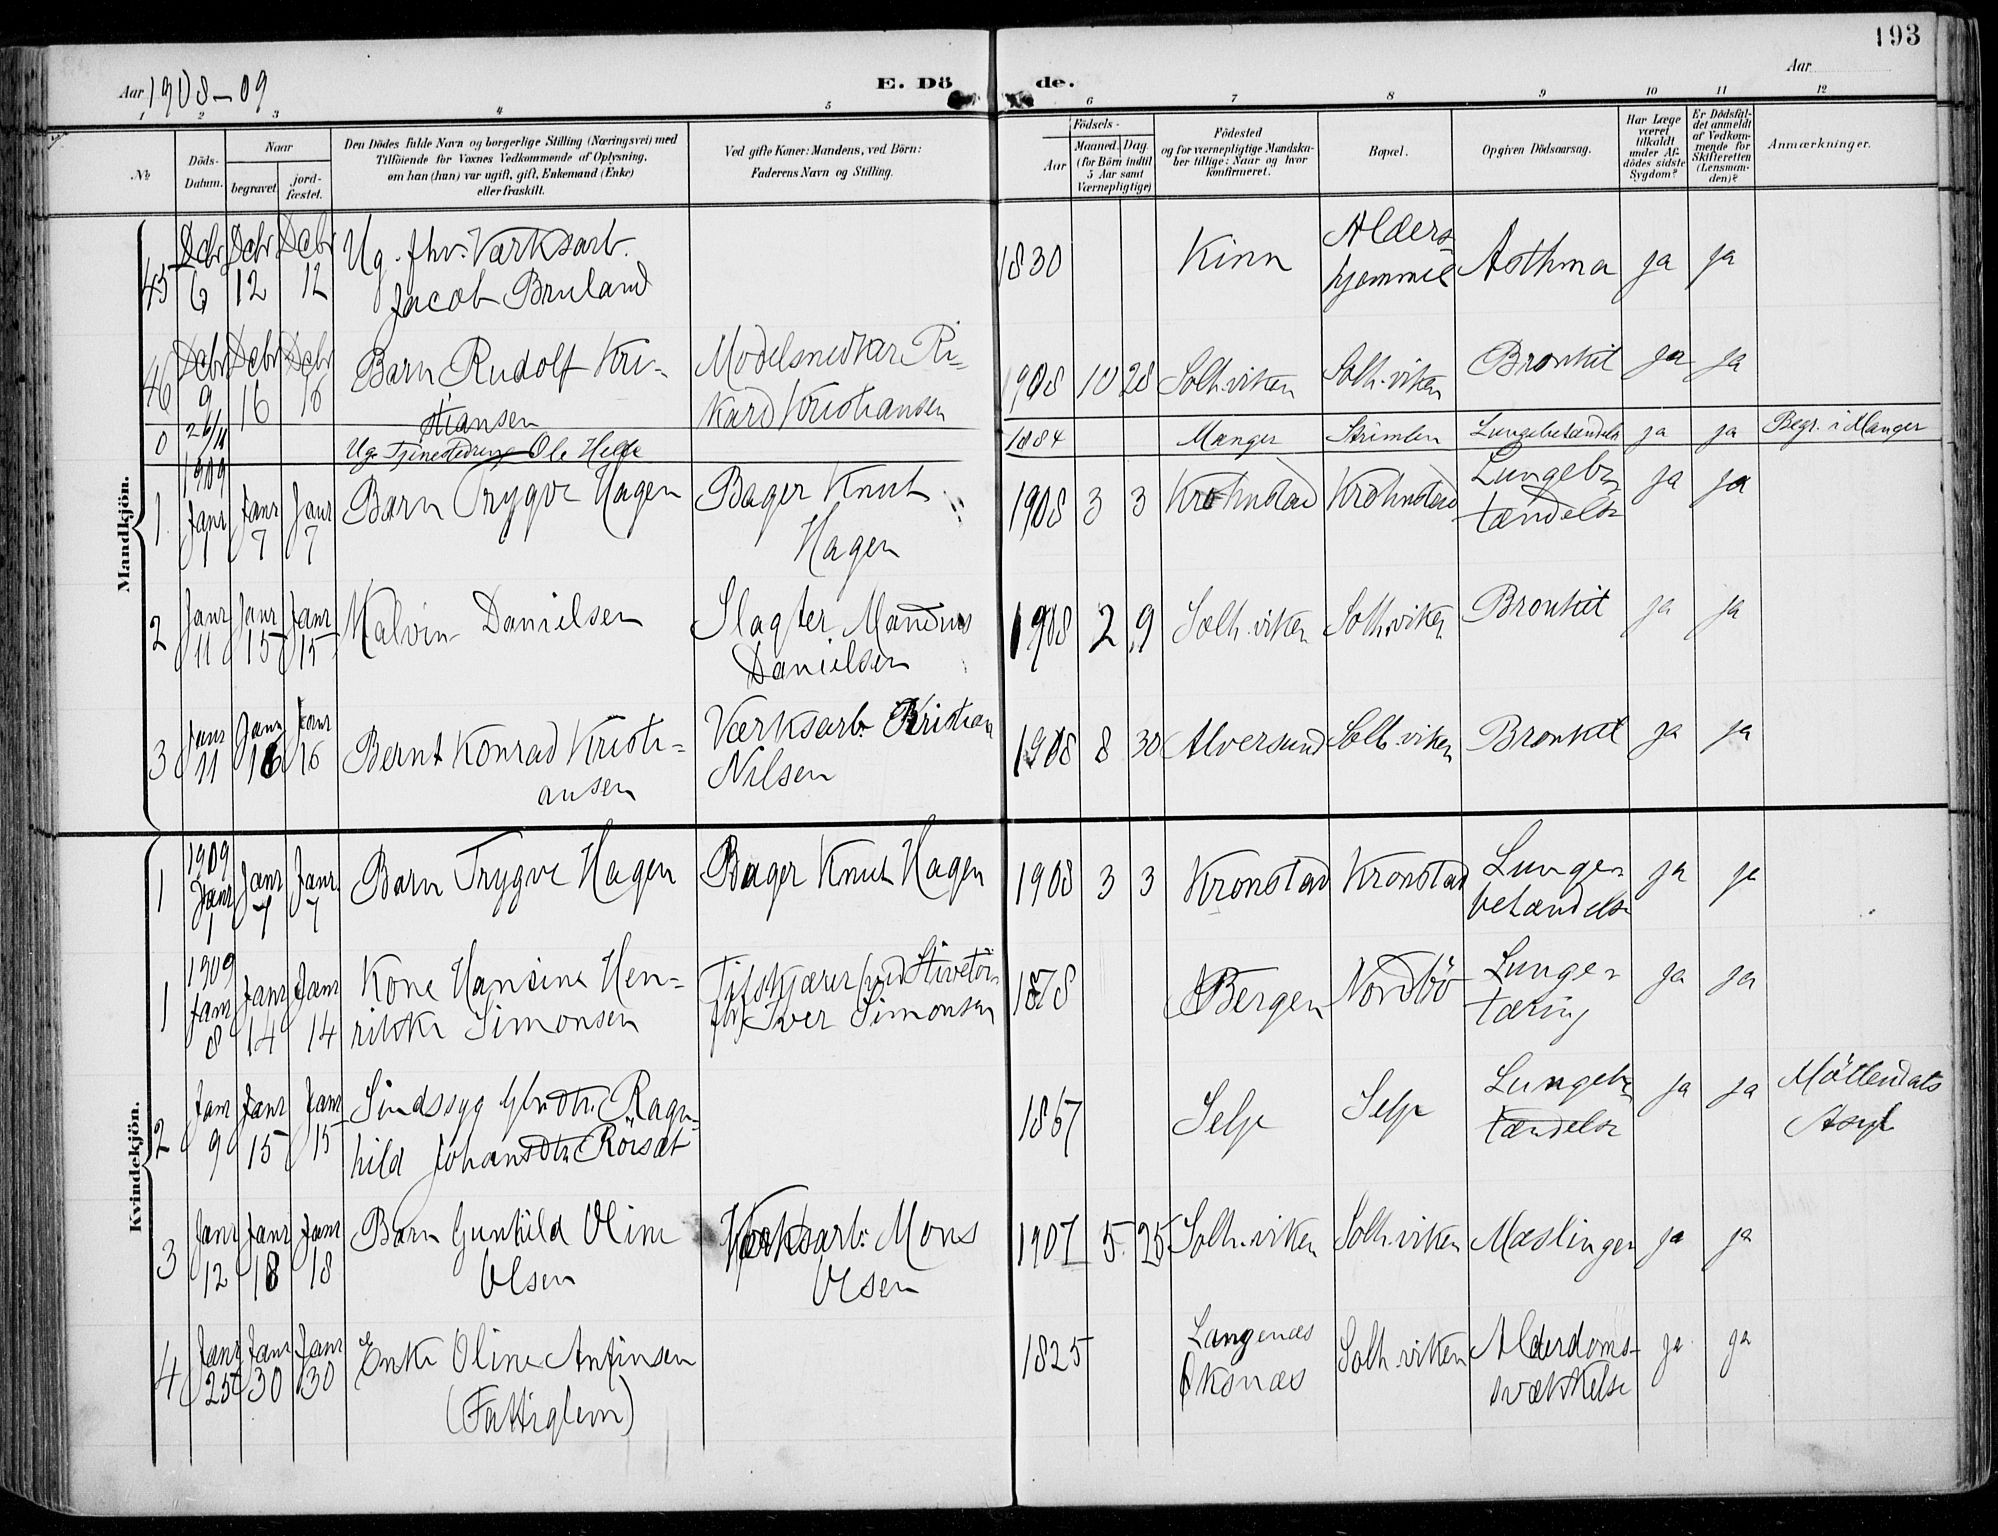 193
Aar 1908-09
E. Dö de.
Aar
1 2 3 4 5 6 7 8 9 10 11 12
№
Döds-
Datum.
Naar
begravet
jord-
fæstet.
Den Dödes fulde Navn og borgerlige Stilling (Næringsvei) med
Tilföiende for Voxnes Vedkommende af Oplysning,
om han (hun) var ugift, gift, Enkemand (Enke)
eller fraskilt.
Ved gifte Koner: Mandens, ved Börn:
Faderens Navn og Stilling.
Födsels-
Aar
Maaned. Dag.
(for Börn indtil
5 Aar samt
Værnepligtige)
Födested
og for værnepligtige Mandska-
ber tillige: Naar og hvor
konfirmeret.
Bopæl.
Opgiven Dödsaarsag.
Har Læge
været
tilkaldt
under Af-
dödes sidste
Sygdom?
Er Dödsfal-
det anmeldt
af Vedkom-
mende for
Skifteretten
(Lensman-
den)?
Anmærkninger.
Mandkjön.
45 Decbr 6 Decbr 12 Decbr 12 Ug. fhv. Værksarb. Jacob Bruland 1830 Kinn Alders-hjemmet Asthma ja ja
46 Decbr 9 Decbr 16 Decbr 16 Barn Rudolf Kri-stiansen Modelsnedker Ri-kard Kristiansen 1908 10 28 Solh.viken Solh.viken Bronkit ja ja
0 26/11 Ug. Tjenestedreng Ole Helle 1884 Manger Lungebetændelse ja ja Begr. i Manger
1909
1. Janr 1 Janr 7 Janr 7 Barn Trygve Hagen Bager Knut Hagen 1908 3 3 Krohnstad Krohnstad Lungebe-tændelse ja ja
2 Janr 11 Janr 15 Janr 15 Malvin Danielsen Slagter Mandius Danielsen 1908 2 9 Solh.viken Solh.viken Bronkit ja ja
3 Janr 11 Janr 16 Janr 16 Bernt Konrad Kristi-ansen Værksarb. Kristian Nilsen 1908 8 30 Alversund Solh.viken Bronkit ja ja
Kvindekjön.
1909
1 Janr 1 Janr 7 Janr 7 Barn Trygve Hagen Bager Knut Hagen 1908 3 3 Kronstad Kronstad Lunge-betændelse ja ja
1909
1 Janr 8 Janr 14 Janr 14 Kone Hansine Hen-rikke Simonsen Iver Simonsen 1878 Bergen Nordbö Lunge-tæring ja ja
2 Janr 9 Janr 15 Janr 15 Sindssyg Gbrdtr. Ragn-hild Johansdtr. Rörsæt 1867 Selje Selje Lungebe-tændelse ja ja Möllendals Asyl
3 Janr 12 Janr 18 Janr 18 Barn Gunhild Oline Olsen Værksarb. Mons Olsen 1907 5 25 Solh.viken Solh.viken Mæslinger ja ja
4 Janr 25 Janr 30 Janr 30 Enke Oline Anfinsen (Fattiglem) 1825 Langenæs Öksnæs Solh.viken Alderdoms-svækkelse ja ja